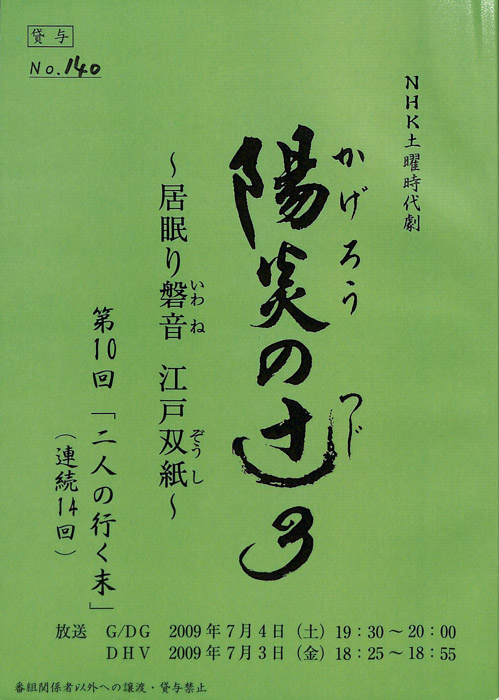 貸与
No.140
NHK土曜時代劇
かげろう つじ
陽炎の辻3
～居眠り磐音 江戸双紙～
いわね ぞうし
第10回「二人の行く末」
(連続14回)
放送 G/DG 2009年7月4日(土)19:30～20:00
DHV 2009年7月3日(金)18:25～18:55
番組関係者以外への譲渡・貸与禁止